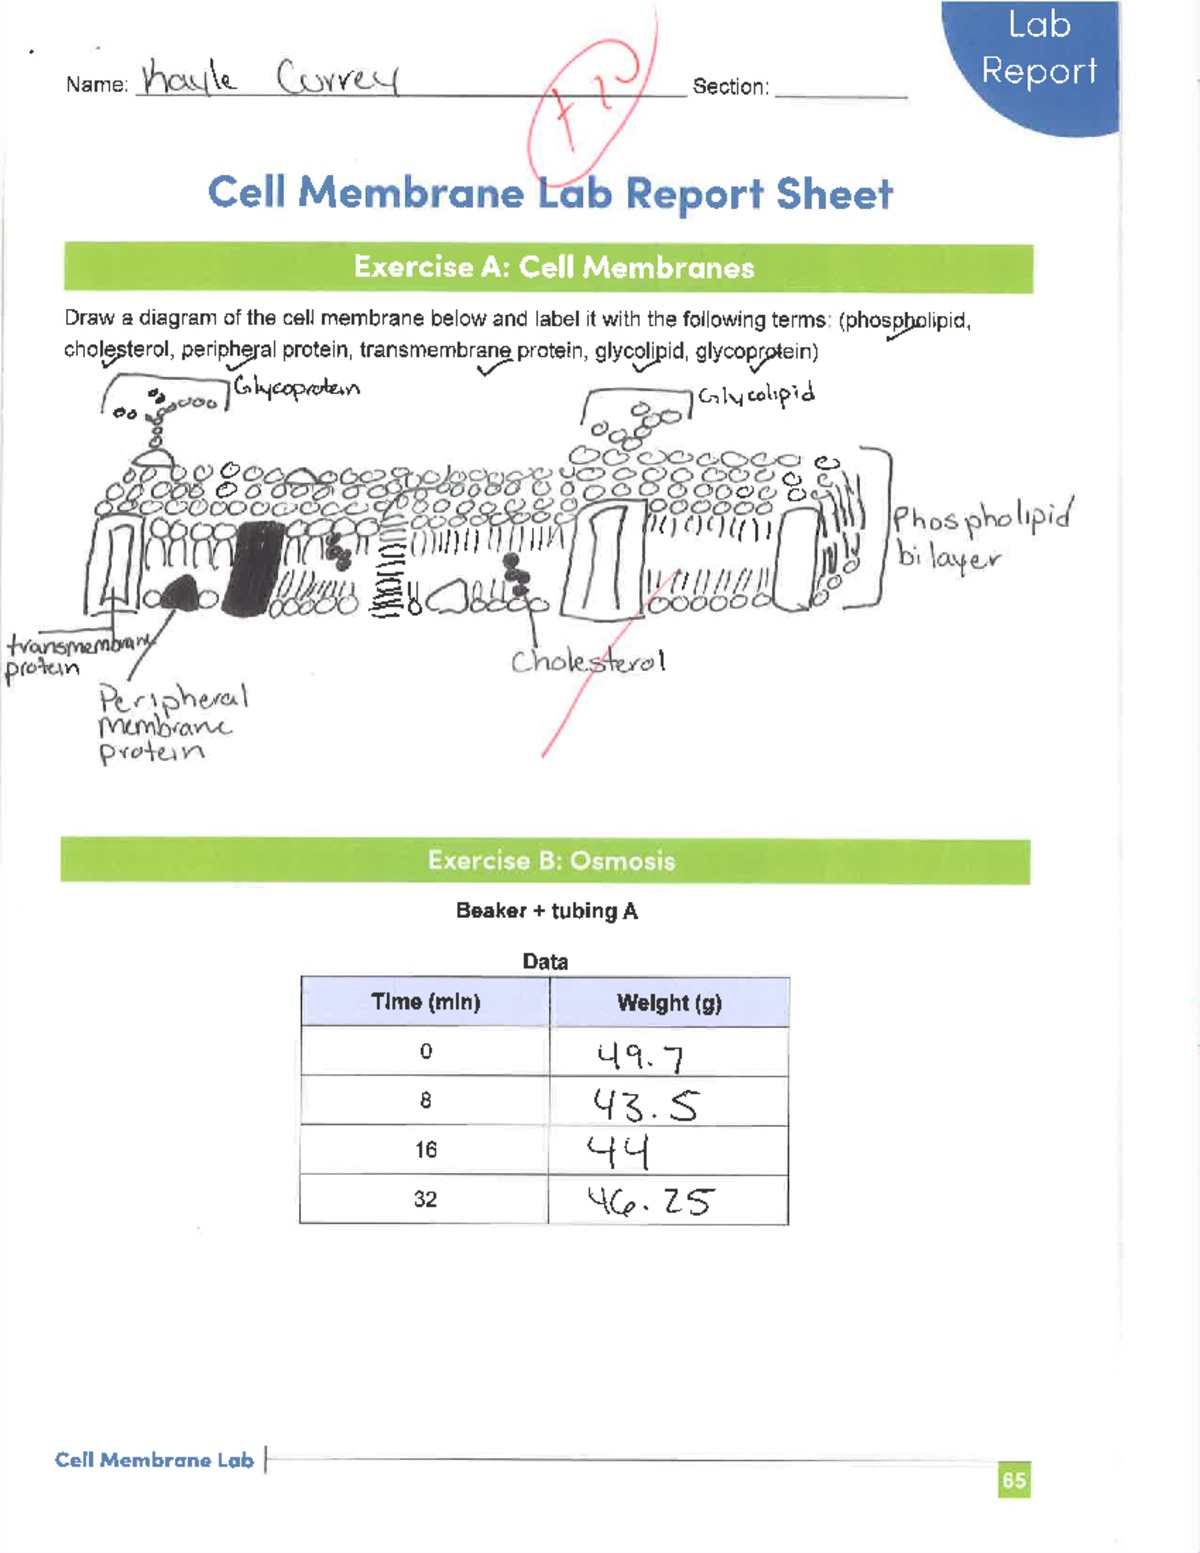 Lab
Report
Name: Kayle Currey Section:
+20
Cell Membrane Lab Report Sheet
Exercise A: Cell Membranes
Draw a diagram of the cell membrane below and label it with the following terms: (phospholipid,
cholesterol, peripheral protein, transmembrane protein, glycolipid, glycoprotein)
Glycoprotein
Glycolipid
Phospholipid
bilayer
transmembrane
protein
Cholesterol
Peripheral
membrane
protein
Exercise B: Osmosis
Beaker + tubing A
Data
Time (min) Weight (g)
0 49.7
8 43.5
16 44
32 46.25
Cell Membrane Lab
65